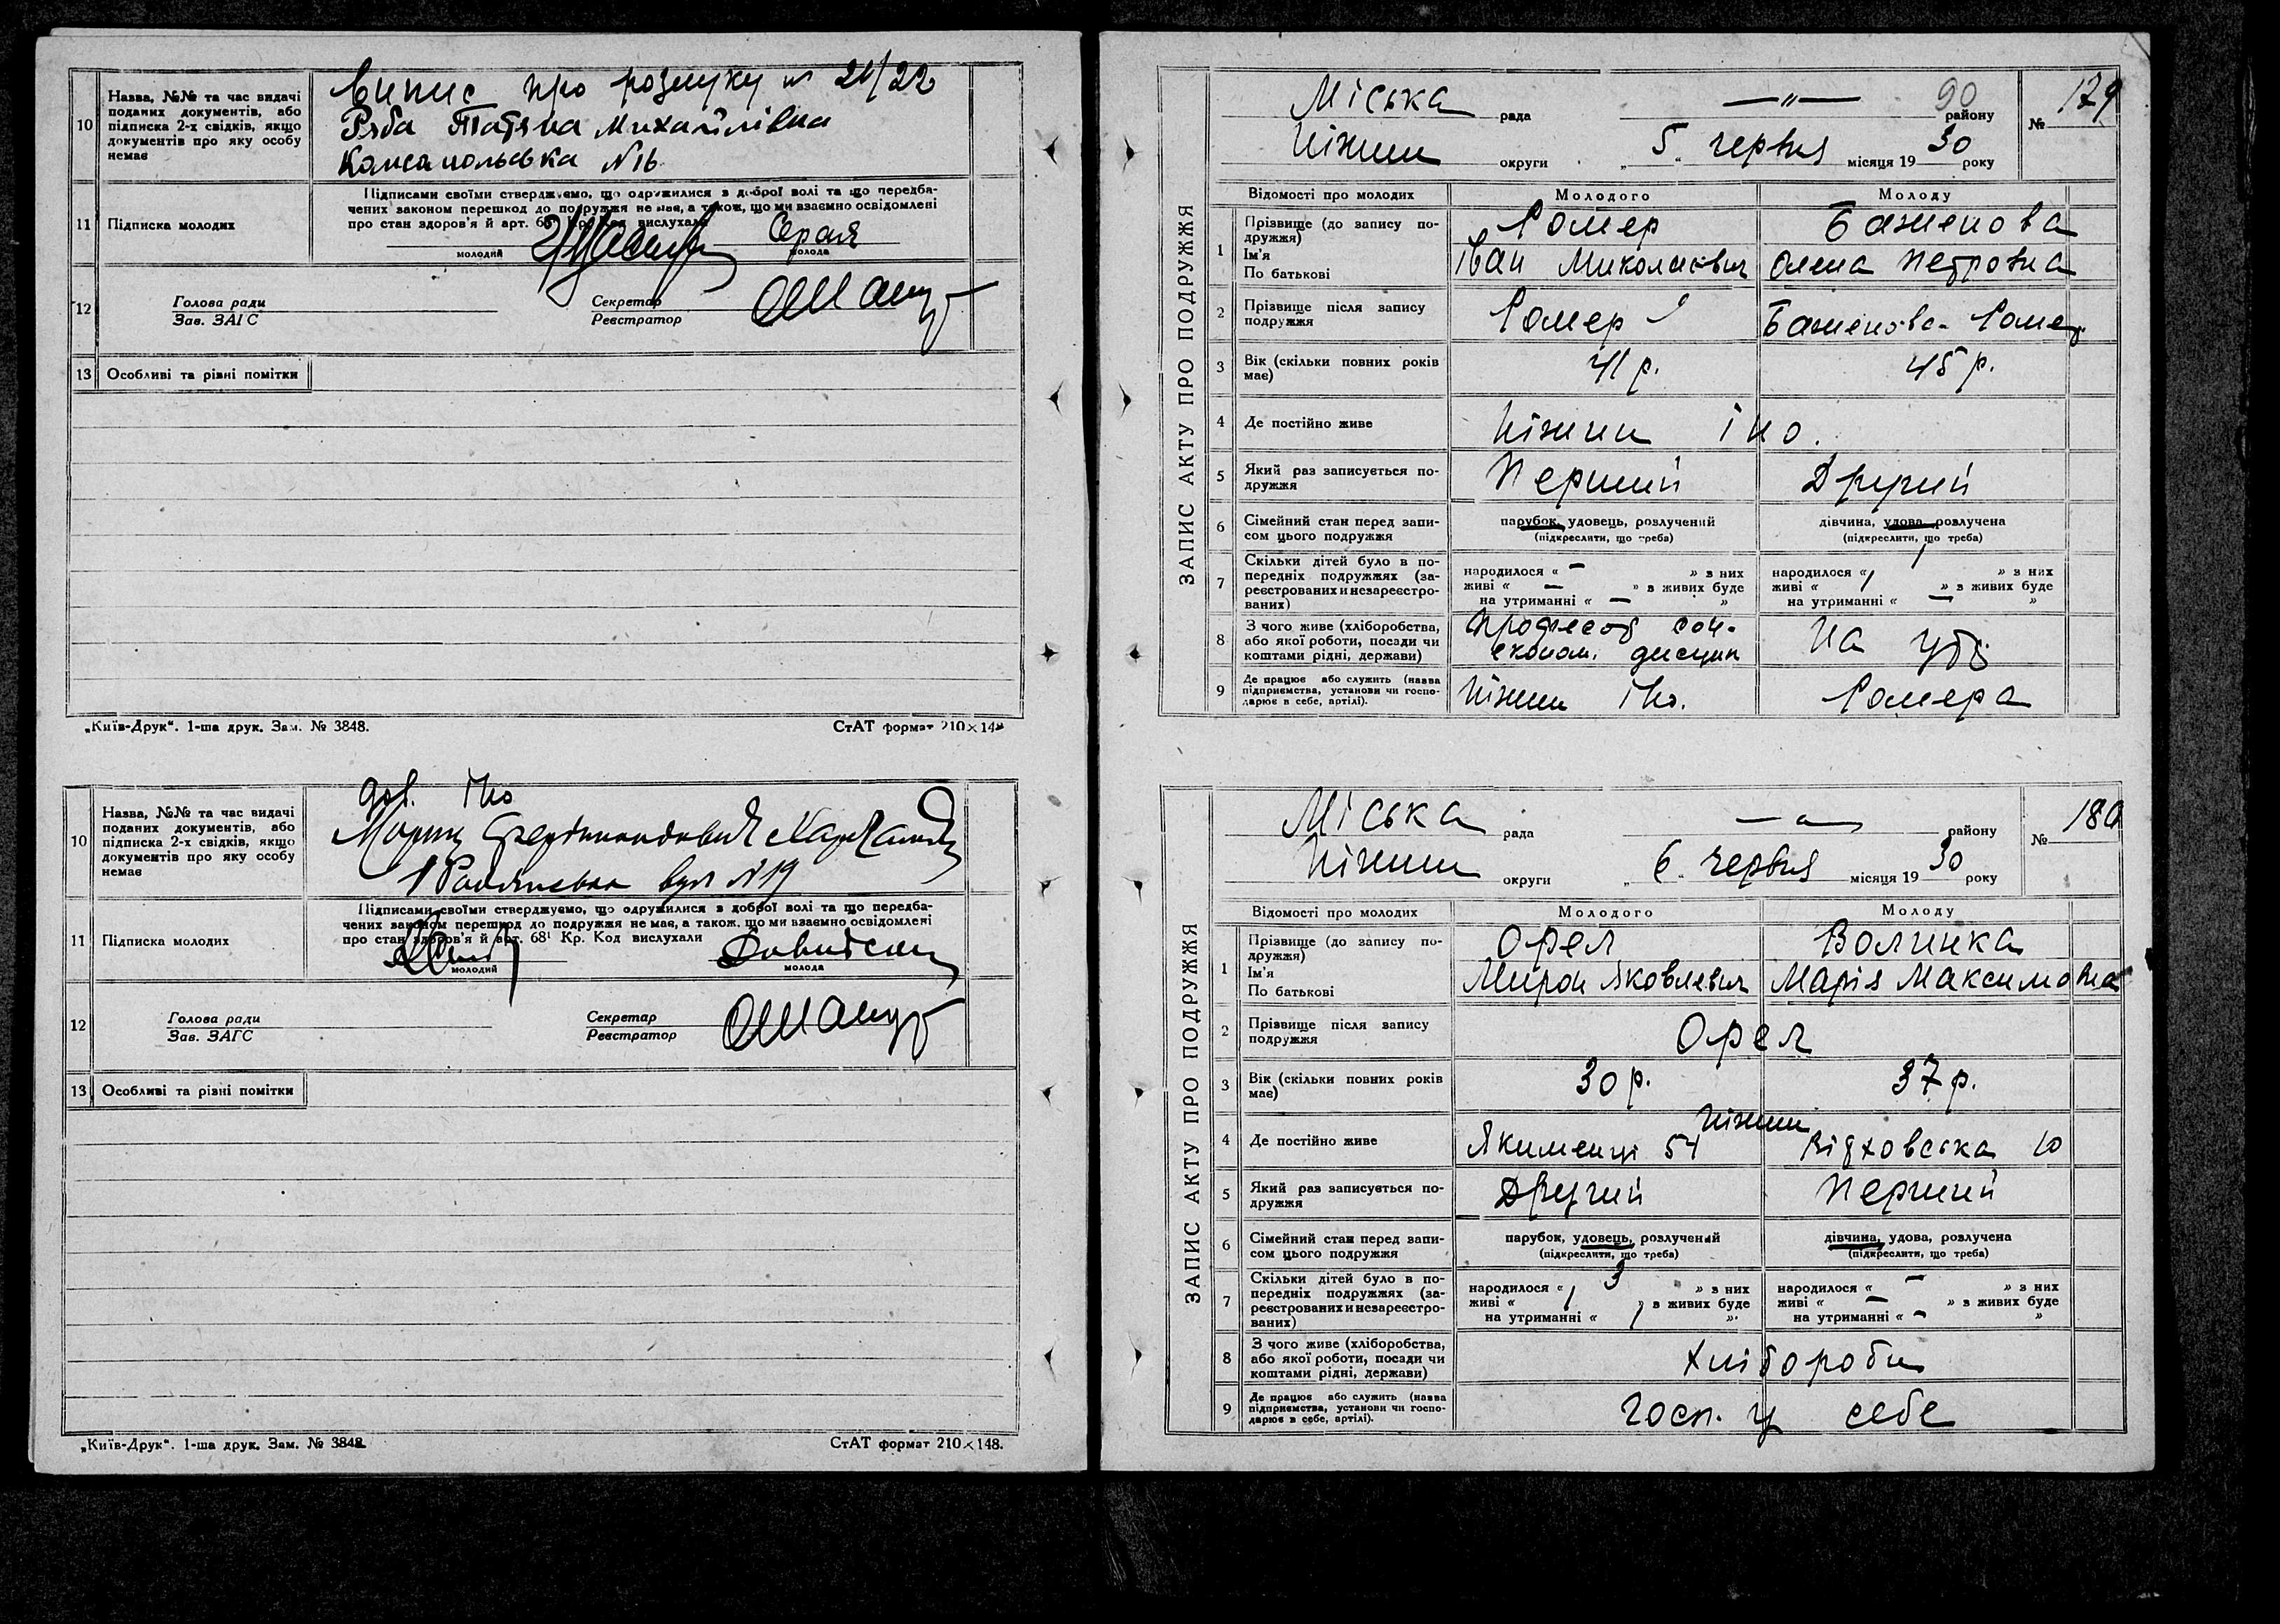 10
Назва, №№ та час видачі
поданих документів, або
підписка 2-х свідків, якщо
документів про яку особу
немає
Випис про розлуку № 21/22
Ряба Татяна Михайлівна
№ 16
11
Підписка молодих
Підписами своїми стверджуємо, що одружилися з доброї волі та що передба-
чених законом перешкод до подружжя не має, а також, що ми взаємно освідомлені
про стан здоров'я й арт. 68¹ Кр. Код вислухали
Серая
молодий
молода
12
Голова ради
Зав. ЗАГС
Секретар
Реєстратор
13
Особливі та різні помітки
„Київ-Друк“. 1-ша друк. Зам. № 3848.
СтАТ формат 210×148
10
Назва, №№ та час видачі
поданих документів, або
підписка 2-х свідків, якщо
документів про яку особу
немає
дов. Іно
вул № 19
11
Підписка молодих
Підписами своїми стверджуємо, що одружилися з доброї волі та що передба-
чених законом перешкод до подружжя не має, а також, що ми взаємно освідомлені
про стан здоров'я й арт. 68¹ Кр. Код вислухали
молодий
молода
12
Голова ради
Зав. ЗАГС
Секретар
Реєстратор
13
Особливі та різні помітки
„Київ-Друк“. 1-ша друк. Зам. № 3848.
СтАТ формат 210×148.
ЗАПИС АКТУ ПРО ПОДРУЖЖЯ
Міська рада — " — району 90 № 179
Ніжин округи „5“ червня місяця 1930 року
Відомості про молодих
Молодого
Молоду
1
Прізвище (до запису по-
дружжя)
Ім'я
По батькові
Ромер
Іван Миколаєвич
Баженова
Олена Петровна
2
Прізвище після запису
подружжя
Ромер
Баженова-Ромер
3
Вік (скільки повних років
має)
41 р.
45 р.
4
Де постійно живе
Ніжин Іно.
5
Який раз записується по-
дружжя
Перший
Другий
6
Сімейний стан перед запи-
сом цього подружжя
парубок, удовець, розлучений
(підкреслити, що треба)
дівчина, удова, розлучена
(підкреслити, що треба)
7
Скільки дітей було в по-
передніх подружжях (за-
реєстрованих и незареєстро-
ваних)
народилося « — » з них
живі « — » з живих буде
на утриманні « — »
народилося « 1 » з них
живі « 1 » з живих буде
на утриманні « — »
8
З чого живе (хліборобства,
або якої роботи, посади чи
коштами рідні, держави)
Професор соц.
економ. дисцип
На утр.
9
Де працює або служить (назва
підприємства, установи чи госпо-
дарює в себе, артілі).
Ніжин Іно.
Ромера
ЗАПИС АКТУ ПРО ПОДРУЖЖЯ
Міська рада — " — району № 180
Ніжин округи „6“ червня місяця 1930 року
Відомості про молодих
Молодого
Молоду
1
Прізвище (до запису по-
дружжя)
Ім'я
По батькові
Орел
Мирон Яковлевич
Волинка
Марія Максимовна
2
Прізвище після запису
подружжя
Орел
3
Вік (скільки повних років
має)
30 р.
37 р.
4
Де постійно живе
Ніжин
54
10
5
Який раз записується по-
дружжя
Другий
Перший
6
Сімейний стан перед запи-
сом цього подружжя
парубок, удовець, розлучений
(підкреслити, що треба)
дівчина, удова, розлучена
(підкреслити, що треба)
7
Скільки дітей було в по-
передніх подружжях (за-
реєстрованих и незареєстро-
ваних)
народилося « 3 » з них
живі « 1 » з живих буде
на утриманні « 1 »
народилося « — » з них
живі « — » з живих буде
на утриманні « — »
8
З чого живе (хліборобства,
або якої роботи, посади чи
коштами рідні, держави)
Хлібороби
9
Де працює або служить (назва
підприємства, установи чи госпо-
дарює в себе, артілі).
Госп. у себе